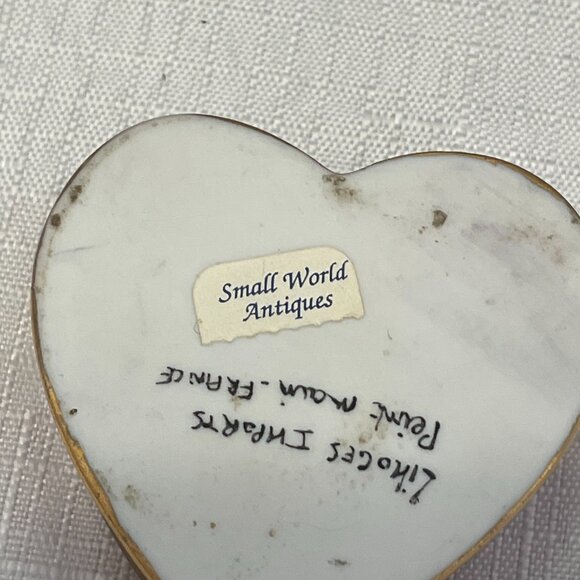 Small World
Antiques
LIMOGES IMPORTS
Peint main - FRANCE